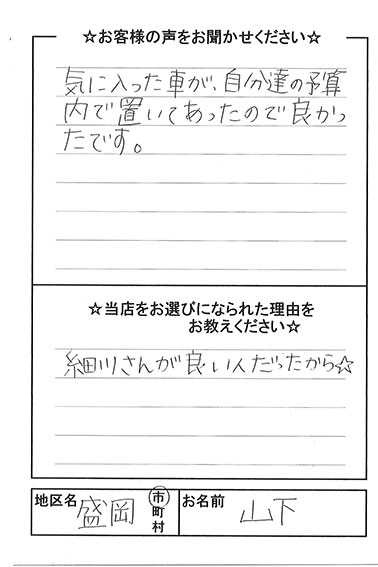 ☆お客様の声をお聞かせください☆
気に入った車が、自分達の予算
内で置いてあったので良かっ
たです。
☆当店をお選びになられた理由を
お教えください☆
細川さんが良い人だったから☆
地区名 盛岡 市町村 お名前 山下